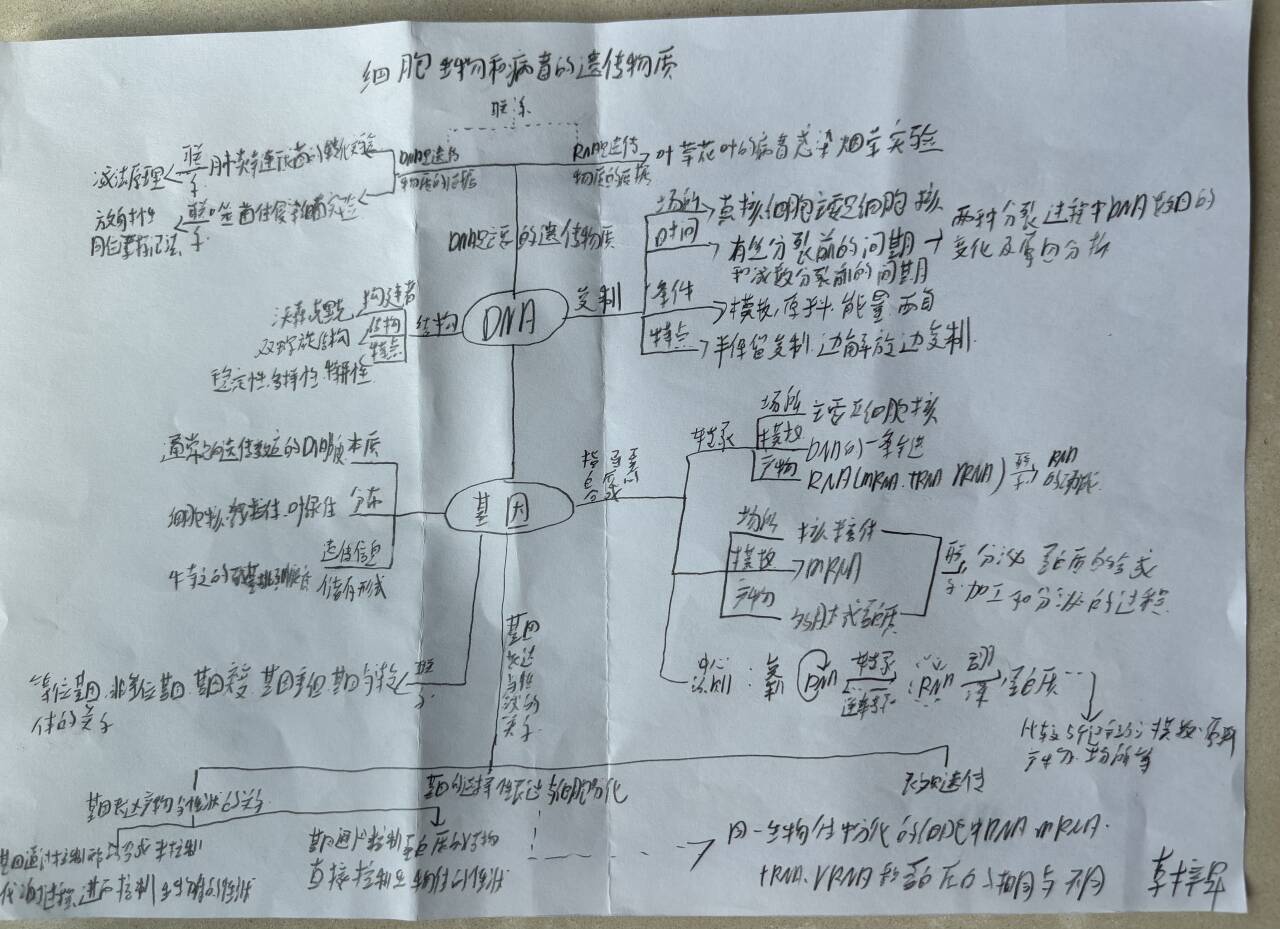 细胞生物和病毒的遗传物质
联系
DNA是遗传
物质的证据
RNA是遗传
物质的证据
叶草花叶的病毒感染烟草实验
减法原理
联系
肺炎链球菌的转化实验
放射性
同位素标记法
联系
噬菌体侵染细菌实验
DNA是主要的遗传物质
DNA
复制
场所
真核细胞主要是细胞核
时间
有丝分裂前的间期
和减数分裂前的间期
两种分裂过程中DNA数目的
变化及原因分析
条件
模板,原料,能量
特点
半保留复制,边解旋边复制
结构
构建者
沃森克里克
结构
双螺旋结构
特点
稳定性,多样性,特异性
基因
本质
通常是有遗传效应的DNA
分布
细胞核、线粒体、叶绿体
遗传信息
储存形式
联系
等位基因,非等位基因,基因突变,基因重组,基因与染色
体的关系
指导蛋白质合成
转录
场所
主要在细胞核
模板
DNA的一条链
产物
RNA(mRNA.tRNA rRNA)
联系
RNA
场所
核糖体
模板
mRNA
产物
联系
分泌蛋白质的合成
加工和分泌的过程
中心
法则:
复制
DNA
转录
逆转录
RNA
翻译
蛋白质
基因表达与性状的关系
基因表达产物与性状的关系
基因的选择性表达与细胞分化
表观遗传
基因通过控制酶的合成来控制
代谢过程,进而控制生物的性状
基因通过控制蛋白质的结构
直接控制生物体的性状
同一生物体中分化的细胞中DNA mRNA.
tRNA.rRNA和蛋白质的相同与不同